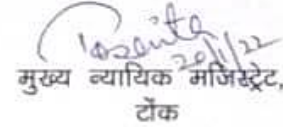 20/1/22
मुख्य न्यायिक मजिस्ट्रेट,
टोंक